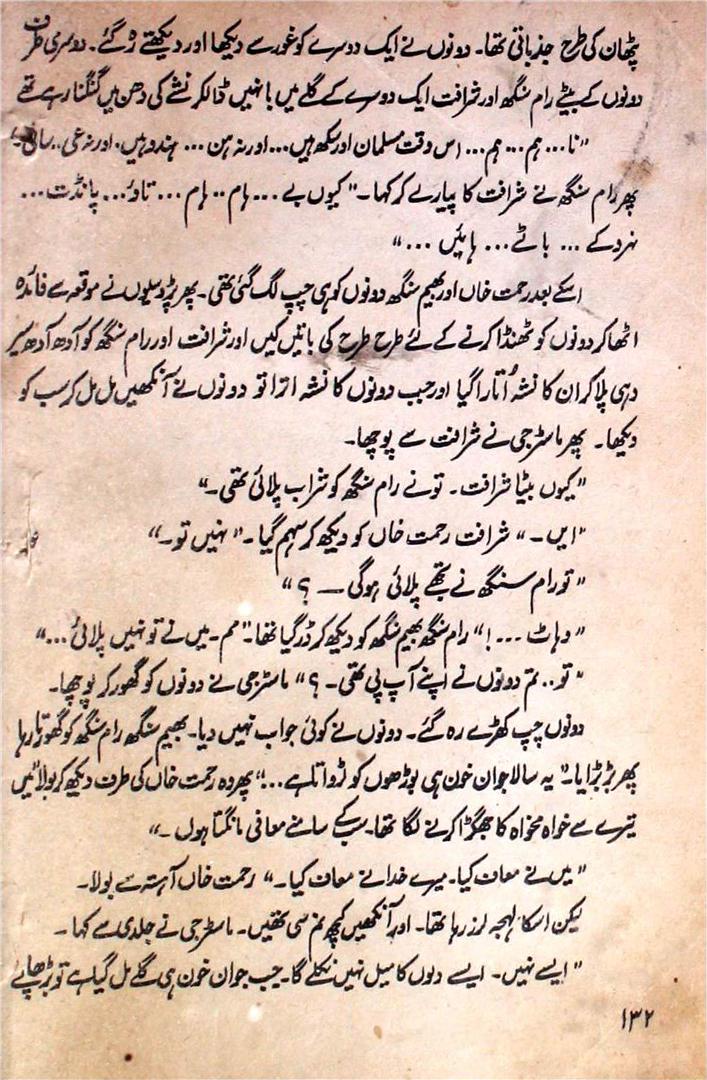 پٹھان کی طرح جذباتی تھا۔ دونوں نے ایک دوسرے کو غور سے دیکھا اور دیکھتے رہ گئے۔ دوسری طرف
دونوں کے بیٹے رام سنگھ اور شرافت ایک دوسرے کے گلے میں بانہیں ڈالکر نشے کی دھن میں گنگنا رہے تھے
"نا... ہم... ہم... اس وقت مسلمان اور سکھ ہیں... اور نہ ہن... ہندو ہیں۔ اور نہ عی..
پھر رام سنگھ نے شرافت کا پیار لے کر کہا۔" کیوں بے... ہام.. ہام... تاؤ... پانڈت...
نہرو کے... باٹے... ہائیں..."
اسکے بعد رحمت خاں اور بھیم سنگھ دونوں کو ہی چپ لگ گئی تھی۔ پھر پڑوسیوں نے موقعہ سے فائدہ
اٹھا کر دونوں کو ٹھنڈا کرنے کے لئے طرح طرح کی باتیں کیں اور شرافت اور رام سنگھ کو آدھ آدھ سیر
دہی پلا کر ان کا نشہ اُتارا گیا اور جب دونوں کا نشہ اترا تو دونوں نے آنکھیں مل مل کر سب کو
دیکھا۔ پھر ماسٹر جی نے شرافت سے پوچھا۔
"کیوں بیٹا شرافت۔ تو نے رام سنگھ کو شراب پلائی تھی۔"
"ایں۔" شرافت رحمت خاں کو دیکھ کر سہم گیا۔" نہیں تو۔"
"تو رام سنگھ نے تجھے پلائی ہوگی — ؟"
"وہاٹ...!" رام سنگھ بھیم سنگھ کو دیکھ کر ڈر گیا تھا۔" مم۔ میں نے تو نہیں پلائی..."
"تو.. تم دونوں نے اپنے آپ پی تھی۔ ؟" ماسٹر جی نے دونوں کو گھور کر پوچھا۔
دونوں چپ کھڑے رہ گئے۔ دونوں نے کوئی جواب نہیں دیا۔ بھیم سنگھ رام سنگھ کو گھورتا رہا
پھر بڑبڑایا۔" یہ سالا جوان خون ہی بوڑھوں کو لڑواتا ہے...!" پھر وہ رحمت خاں کی طرف دیکھ کر بولا "میں
تیرے سے خواہ مخواہ کا جھگڑا کرنے لگا تھا۔ سب کے سامنے معافی مانگتا ہوں۔"
"میں نے معاف کیا۔ میرے خدا نے معاف کیا۔" رحمت خاں آہستہ سے بولا۔
لیکن اسکا لہجہ لرز رہا تھا۔ اور آنکھیں کچھ نم سی تھیں۔ ماسٹر جی نے جلدی سے کہا۔
"ایسے نہیں۔ ایسے دلوں کا میل نہیں نکلے گا۔ جب جوان خون ہی گلے مل گیا ہے تو بڑھاپے
۱۳۲